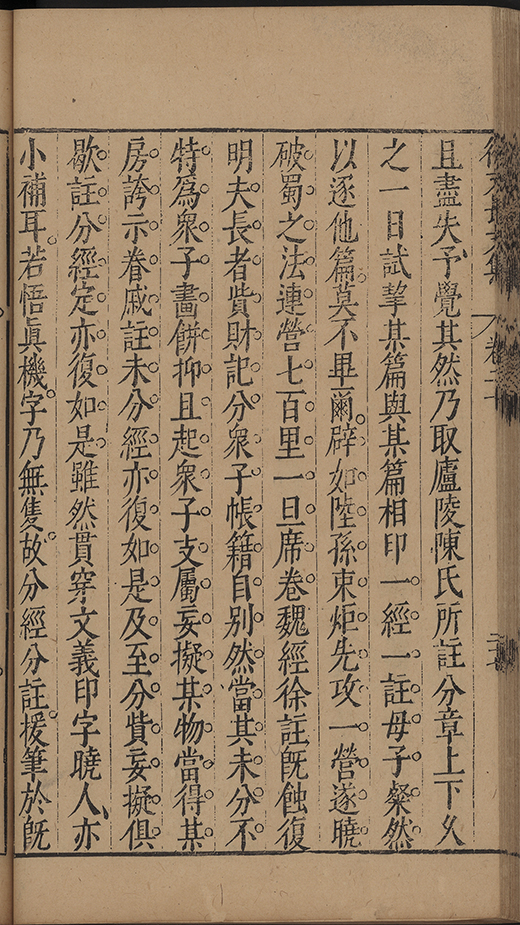 卷二十
且盡失予覺其然乃取廬陵陳氏所註分章上下久
之一日試挈某篇與某篇相印一經一註母子粲然
以逐他篇莫不畢爾辟如陸孫束炬先攻一營遂曉
破蜀之法連營七百里一旦席卷魏經徐註旣蝕復
明夫長者貲財記分衆子帳籍自別然當其未分不
特爲衆子畫餅抑且起衆子支屬妄擬某物當得某
房誇示眷戚註未分經亦復如是及至分貲妄擬俱
歇註分經定亦復如是雖然貫穿文義印字曉人亦
小補耳若悟眞機字乃無隻故分經分註援筆於旣